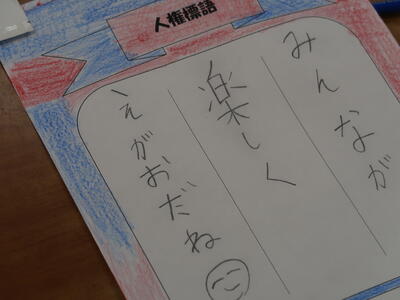 人権標語
みんなが
楽しく
えがおだね